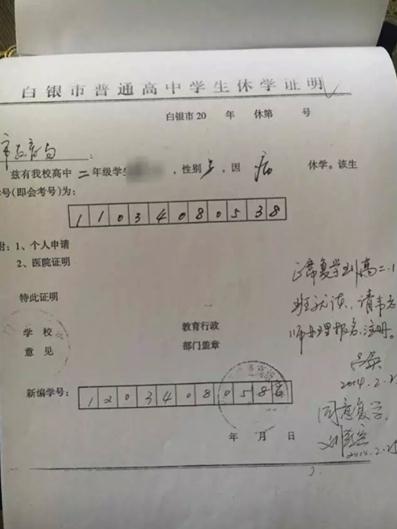 白银市普通高中学生休学证明
白银市20 年 休第 号
市教育局:
兹有我校高中二年级学生 ,性别 ,因 病 休学。该生
学号(即会考号)为:
11034080538
附:1、个人申请
2、医院证明
特此证明
学校 教育行政
意见 部门盖章
正常复学到高二.1
班就读、请韦老
师办理报名、注册。
2014.2.2
新编学号:
同意复学
2014.2.25
年 月 日